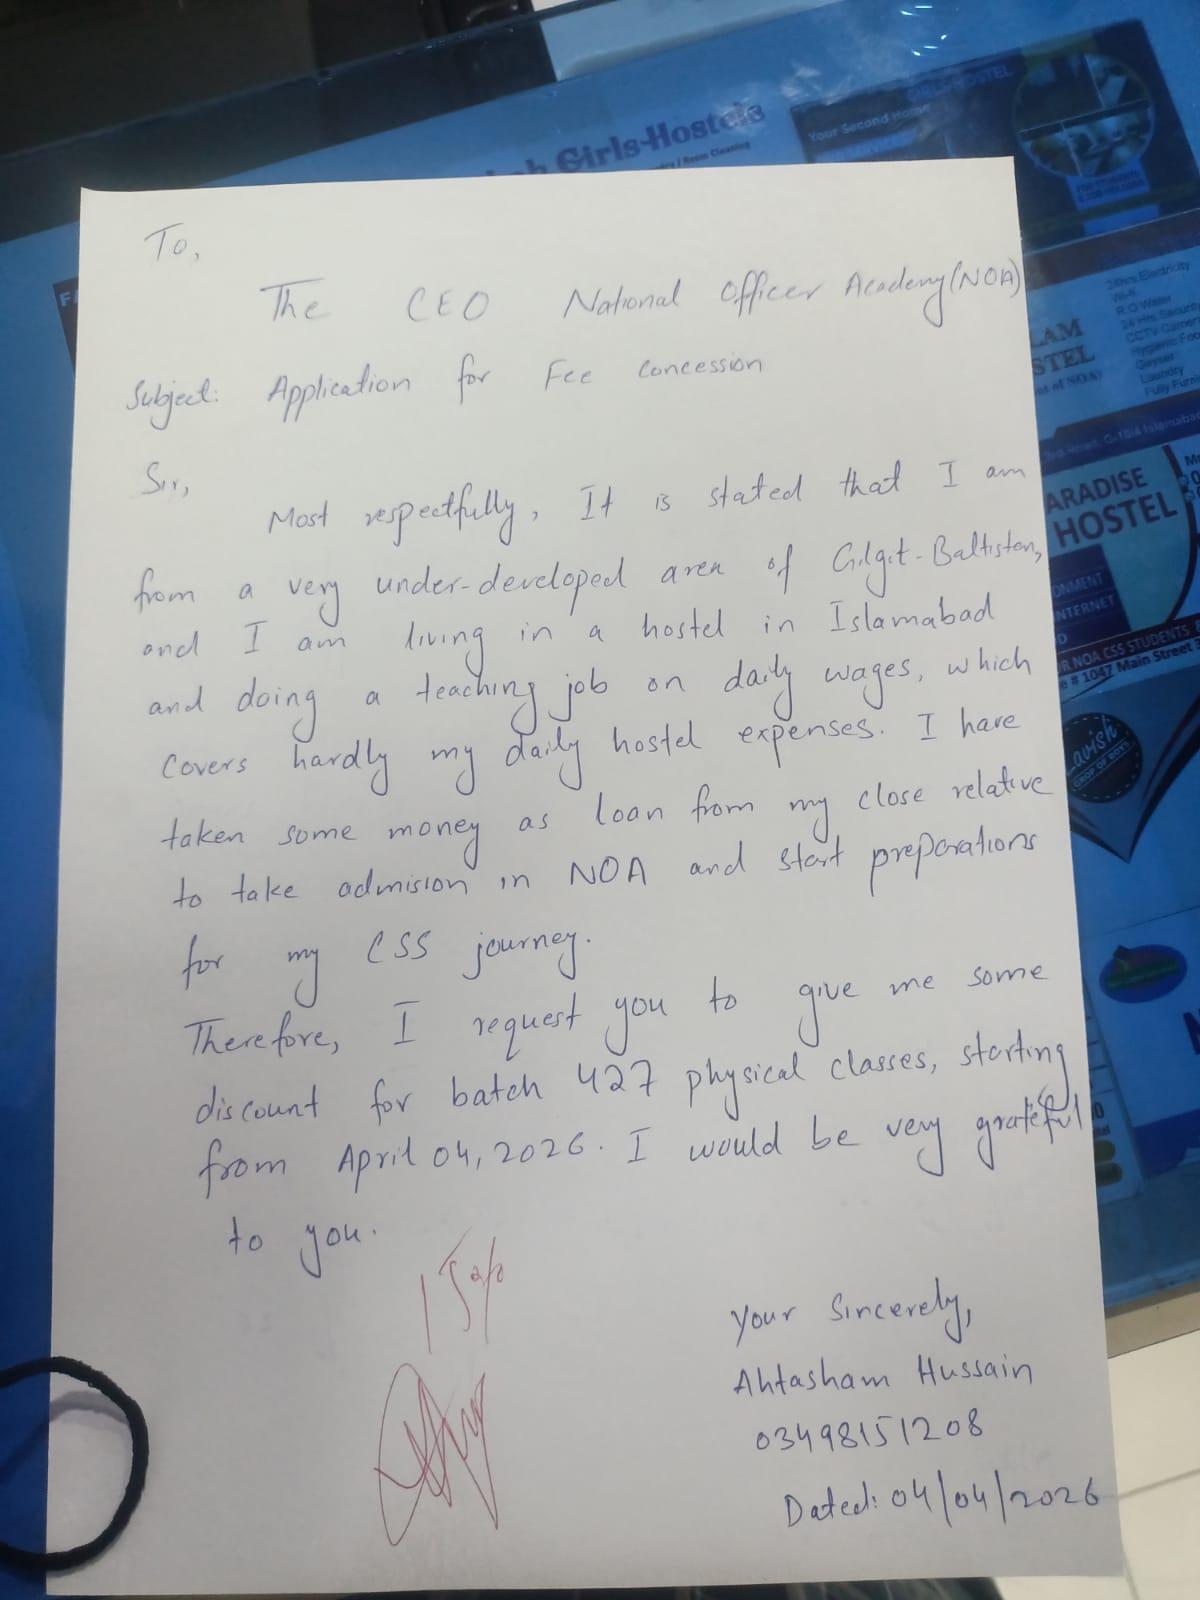 Girls-Hostels
Room Cleaning
Your Second Home
HOSTEL
To,
The CEO National Officer Academy (NOA)
Subject: Application for Fee Concession
Sir,
Most respectfully, It is stated that I am
from a very under-developed area of Gilgit-Baltistan,
and I am living in a hostel in Islamabad
and doing a teaching job on daily wages, which
covers hardly my daily hostel expenses. I have
taken some money as loan from my close relative
to take admision in NOA and start preparations
for my CSS journey.
Therefore, I request you to give me some
discount for batch 427 physical classes, starting
from April 04, 2026. I would be very grateful
to you.
15%
Your Sincerely,
Ahtasham Hussain
03498151208
Dated: 04/04/2026
24hrs Electricity
Wi-fi
R.O Water
24 Hrs Security
CCTV Camer
Hygienic Foo
Geyser
Laundry
Fully Furni
LAM
STEL
of NOA)
G-10/4 Islamaba
ARADISE
HOSTEL
ONMENT
NTERNET
R NOA CSS STUDENTS
e # 1047 Main Street
avish
CROP OF BOYS